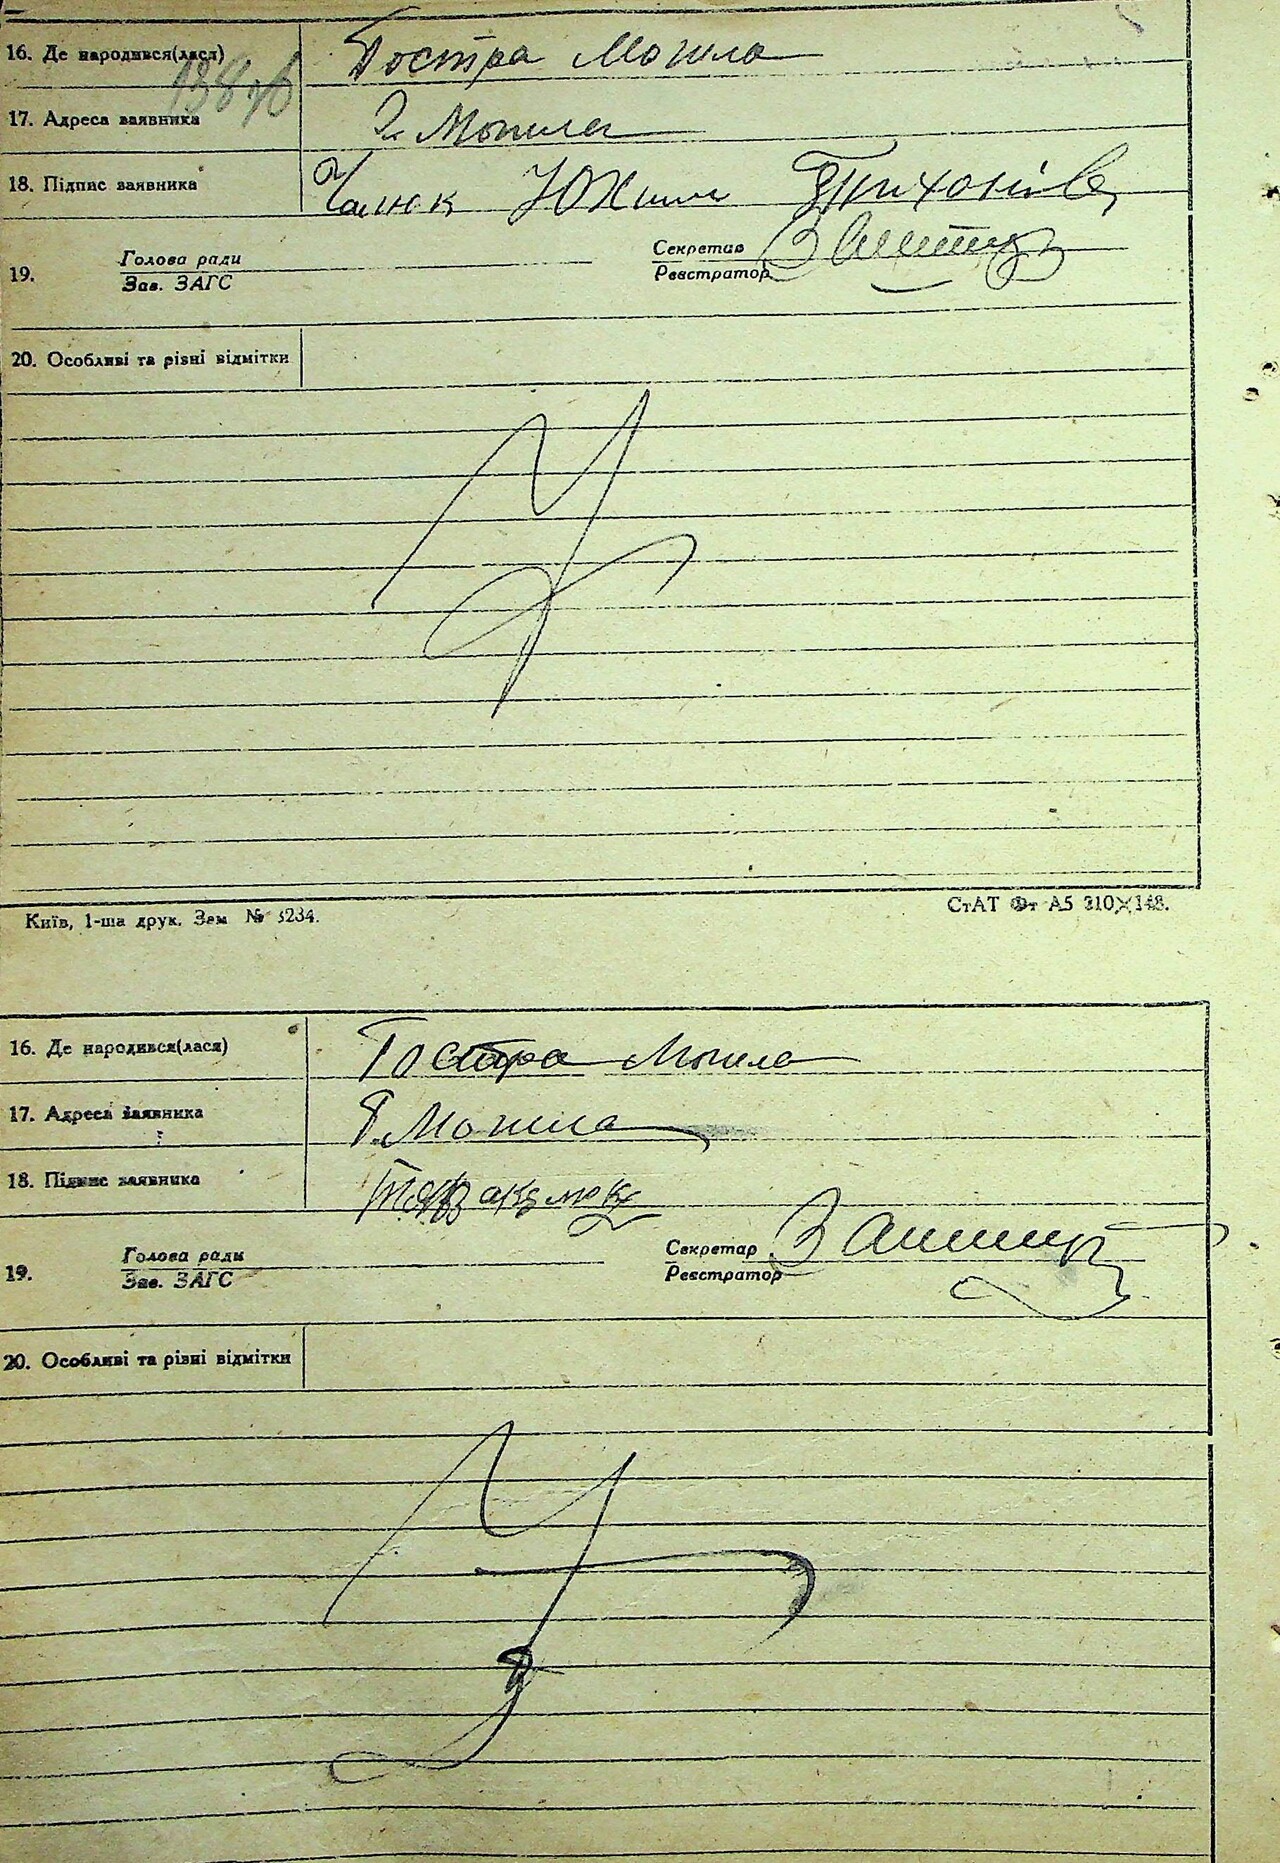 16. Де народився(лася) Гостра Могила
138 зв
17. Адреса заявника Г. Могила
18. Підпис заявника Чалюк Юхим Тихонів
19. Голова ради Секретар
Зав. ЗАГС Реєстратор
20. Особливі та різні відмітки
Київ, 1-ша друк. Зам № 3234.
СтАТ Фт А5 210×148.
16. Де народився(лася) Гостра Могила
17. Адреса заявника Г. Могила
18. Підпис заявника
19. Голова ради Секретар
Зав. ЗАГС Реєстратор
20. Особливі та різні відмітки